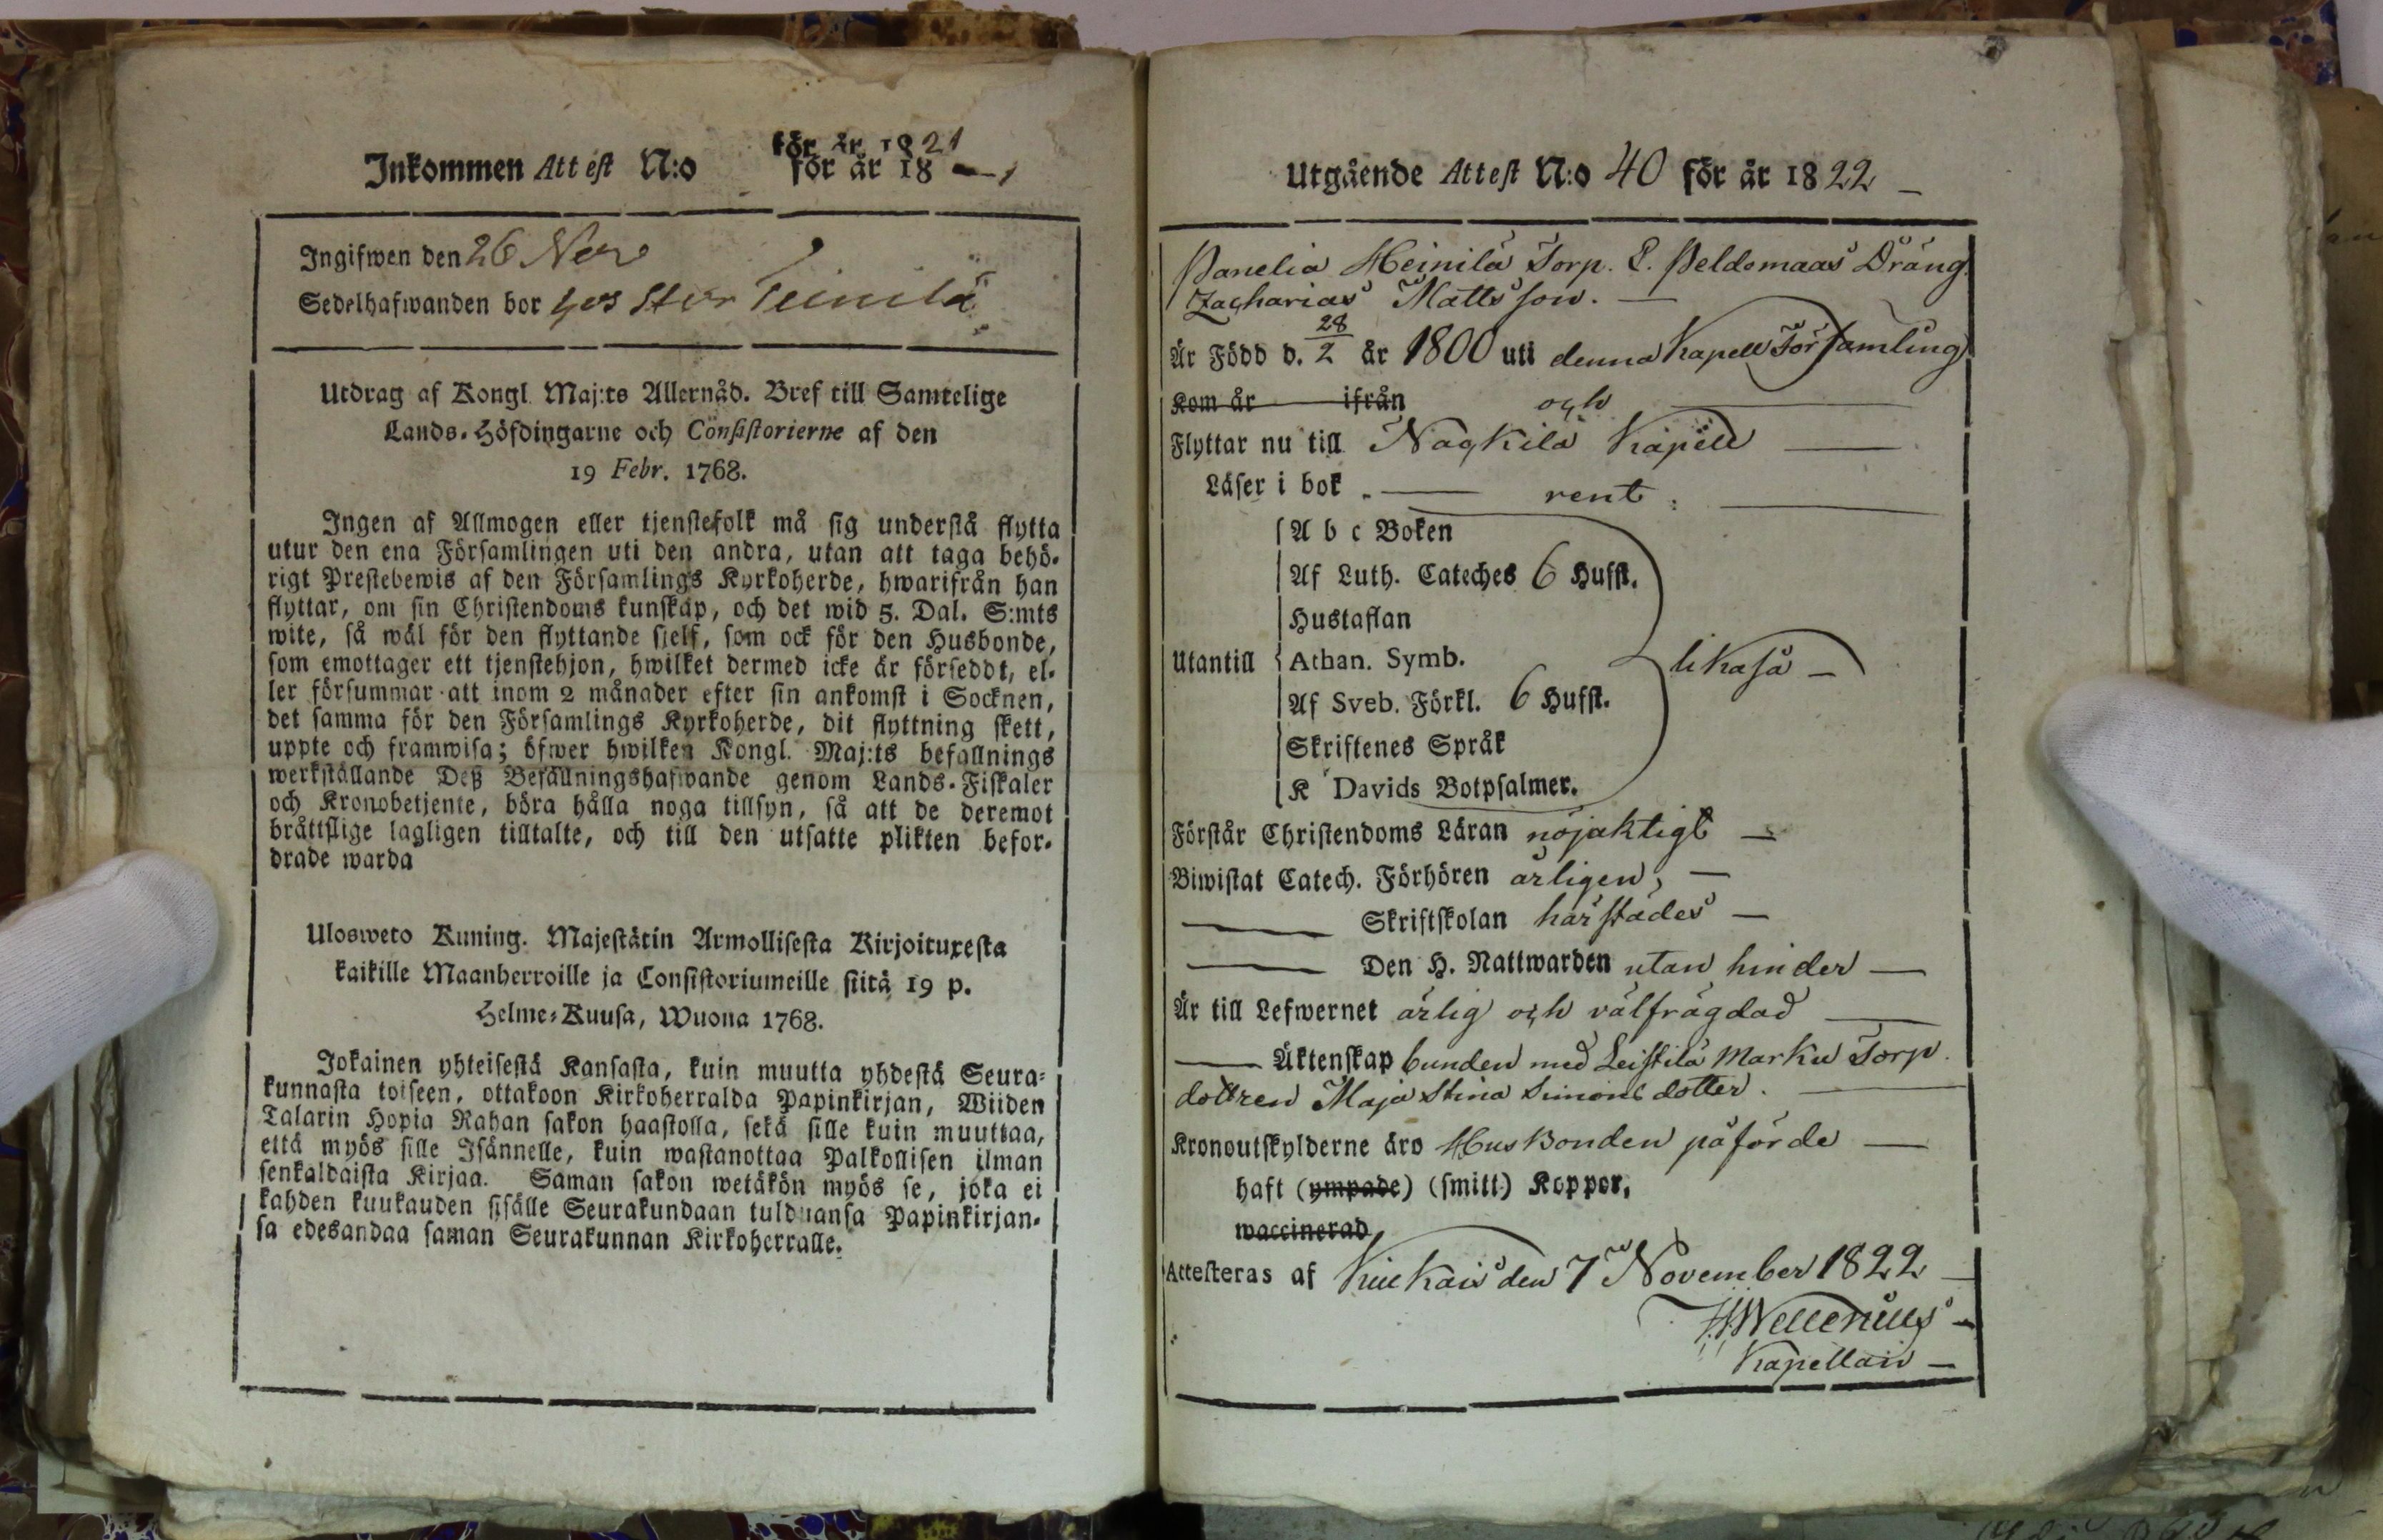 för år 1821
Inkommen Attest N:o för år 18
Ingifwen den 26 Nov
Sedelhafwanden bor hos Stor Teinilä
Utdrag af Kongl. Maj:ts Allernåd. Bref till Samtelige
Lands-Höfdingarne och Consistorierne af den
19 Febr. 1768.
Ingen af Allmogen eller tjenstefolk må sig understå flytta
utur den ena Församlingen uti den andra, utan att taga behö-
rigt Prestebewis af den Församlings Kyrkoherde, hwarifrån han
flyttar, om sin Christendoms kunskap, och det wid 5. Dal. S:mts
wite, så wäl för den flyttande sjelf, som ock för den Husbonde,
som emottager ett tjenstehjon, hwilket dermed icke är förseddt, el-
ler försummar att inom 2 månader efter sin ankomst i Socknen,
det samma för den Församlings Kyrkoherde, dit flyttning skett,
uppte och framwisa; öfwer hwilken Kongl. Maj:ts befallnings
werkställande Deß Befällningshafwande genom Lands-Fiskaler
och Kronobetjente, böra hålla noga tillsyn, så att de deremot
bråttslige lagligen tilltalte, och till den utsatte plikten befor-
drade warda
Ulosweto Kuning. Majestätin Armollisesta Kirjoituxesta
kaikille Maanherroille ja Consistoriumeille siitä 19 p.
Helme-Kuusa, Wuona 1768.
Jokainen yhteisestä Kansasta, kuin muutta yhdestä Seura-
kunnasta toiseen, ottakoon Kirkoherralda Papinkirjan, Wiiden
Talarin Hopia Rahan sakon haastolla, sekä sille kuin muuttaa,
että myös sille Isännelle, kuin wastanottaa Palkollisen ilman
senkaldaista Kirjaa. Saman sakon wetäkön myös se, joka ei
kahden kuukauden sisälle Seurakundaan tulduansa Papinkirjan-
sa edesandaa saman Seurakunnan Kirkoherralle.
Utgående Attest N:o 40 för år 1822
Panelia Heinilä Torp. L. Peldomaas Dräng
Zacharias Mattsson.
Är Född d. 28/2 år 1800 uti denna Kapell Församling
Kom år ifrån och
Flyttar nu till Nackila Kapell
Läser i bok rent
A b c Boken
Af Luth. Cateches 6 Hufst.
Hustaflan
Utantill Athan. Symb. likaså
Af Sveb. Förkl. 6 Hufst.
Skriftenes Språk
K Davids Botpsalmer.
Förstår Christendoms Läran nöjaktigt
Biwistat Catech. Förhören årligen,
Skriftskolan härstädes
Den H. Nattwarden utan hinder
Är till Lefwernet ärlig och välfrägdad
Äktenskap bunden med Leistilä Marku Torp.
dottren Maja Stina Simons dotter.
Kronoutskylderne äro Husbonden påförde
haft (ympade) (smitt) Koppor,
waccinerad
Attesteras af Kiukais den 7 November 1822
Kapellan